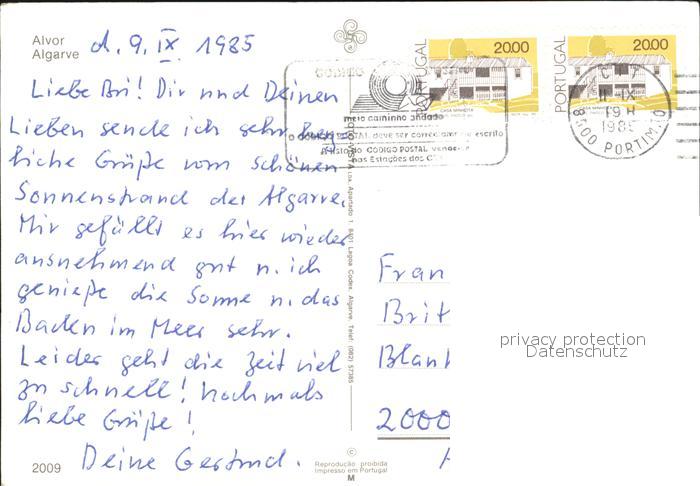 Alvor
Algarve
d. 9. IX. 1985
Liebe Bri! Dir und Deinen
Lieben sende ich sehr herz-
liche Grüße vom schönen
Sonnenstrand der Algarve.
Mir gefällt es hier wieder
ausnehmend gut u. ich
genieße die Sonne u. das
Baden im Meer sehr.
Leider geht die Zeit viel
zu schnell! Nochmals
liebe Grüße!
Deine Gertrud.
2009
CODIGO
meio caminho andado
o CODIGO POSTAL deve ser correctamente escrito
A lista do CODIGO POSTAL vende-se
nas Estações dos CTT
PORTUGAL
20.00
PORTUGAL
20.00
IX
19 H
1985
8500 PORTIMÃO
Apartado 1 8401 Lagoa Codex, Algarve Telef. (082) 57385
Fran
Brit
Blank
2000
privacy protection
Datenschutz
©
Reprodução proibida
Impresso em Portugal
M